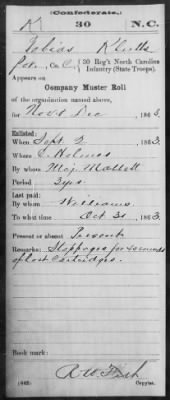 (Confederate.)
K 30 N.C.
Tobias Klutts
Pvt., Co. C, 30 Reg't North Carolina
Infantry (State Troops).
Appears on
Company Muster Roll
of the organization named above,
for Nov & Dec, 1863.
Enlisted:
When Sept 2, 1863.
Where C. Holmes
By whom Maj. Mallett
Period 3 yrs.
Last paid:
By whom Williams
To what time Oct 31, 1863.
Present or absent Present
Remarks: Stoppages for 40 rounds
of lost Cartridges.
Book mark:
(642) Copyist.